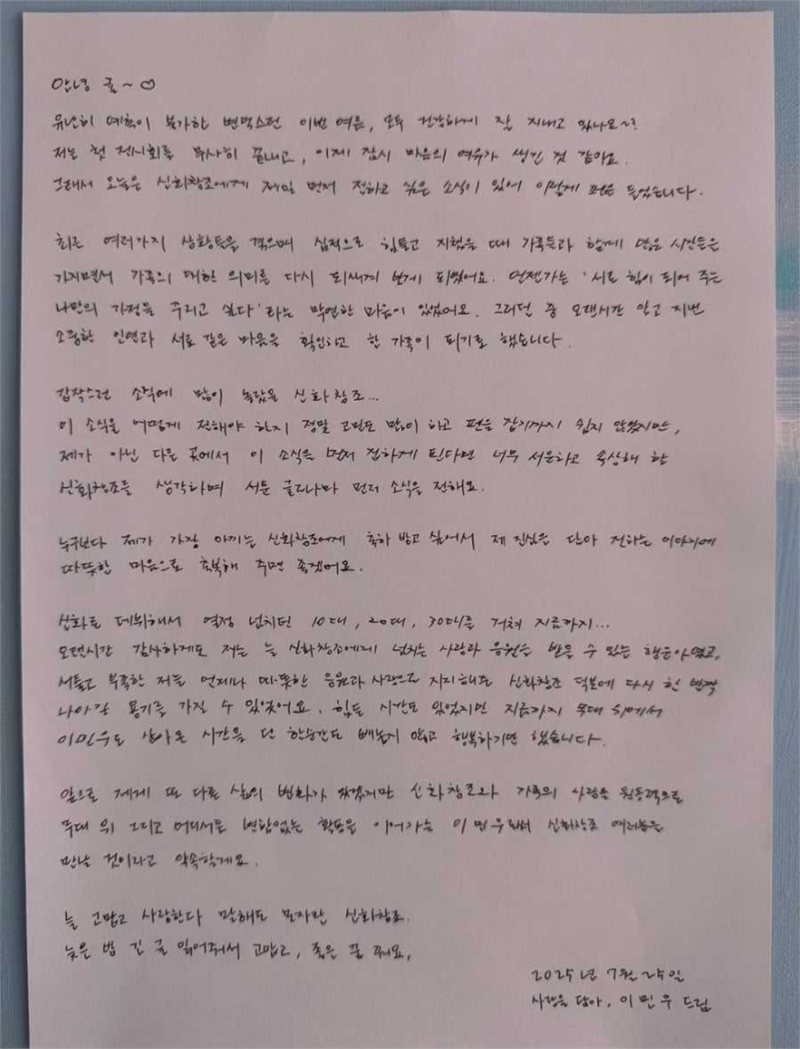 안녕 귤~♡
유난히 예측이 불가한 변덕스런 이번 여름, 모두 건강하게 잘 지내고 있나요~?
저는 첫 전시회를 무사히 끝내고, 이제 잠시 마음의 여유가 생긴 것 같아요.
그래서 오늘은 신화창조에게 제일 먼저 전하고 싶은 소식이 있어 이렇게 펜을 들었습니다.
최근 여러가지 상황들을 겪으며 심적으로 힘들고 지쳤을 때 가족들과 함께 많은 시간들을
가지면서 가족의 대한 의미를 다시 되새겨 보게 되었어요. 언젠가는 '서로 힘이 되어 주는
나만의 가정을 꾸리고 싶다'라는 막연한 마음이 있었어요. 그러던 중 오랜시간 알고 지낸
소중한 인연과 서로 같은 마음을 확인하고 한 가족이 되기로 했습니다.
갑작스런 소식에 많이 놀랐을 신화창조...
이 소식을 어떻게 전해야 할지 정말 고민도 많이 하고 펜을 잡기까지 쉽지 않았지만,
제가 아닌 다른 곳에서 이 소식을 먼저 접하게 된다면 너무 서운하고 속상해 할
신화창조를 생각하며 서툰 글로나마 먼저 소식을 전해요.
누구보다 제가 가장 아끼는 신화창조에게 축하 받고 싶어서 제 진심을 담아 전하는 이야기에
따뜻한 마음으로 축복해 주면 좋겠어요.
신화로 데뷔해서 열정 넘치던 10대, 20대, 30대를 거쳐 지금까지...
오랜시간 감사하게도 저는 늘 신화창조에게 넘치는 사랑과 응원을 받을 수 있는 행운아였고,
서툴고 부족한 저를 언제나 따뜻한 응원과 사랑으로 지지해준 신화창조 덕분에 다시 한 번 더
나아갈 용기를 가질 수 있었어요. 힘든 시간도 있었지만 지금까지 무대 위에서
이민우로 살아온 시간을 단 한순간도 빼놓지 않고 행복하기만 했습니다.
앞으로 제게 또 다른 삶의 변화가 있겠지만 신화창조와 가족의 사랑을 원동력으로
무대 위 그리고 어디서든 변함없는 활동을 이어가는 이민우로써 신화창조 여러분을
만날 것이라고 약속할게요.
늘 고맙고 사랑한다 말해도 모자란 신화창조.
늦은 밤 긴 글 읽어줘서 고맙고, 좋은 꿈 꿔요.
2025년 7월 25일
사랑을 담아, 이민우 드림